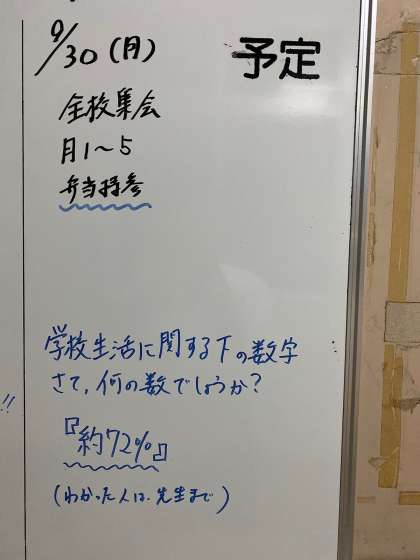 9/30(月)
予定
全校集会
月1〜5
弁当持参
学校生活に関する下の数字
さて、何の数でしょうか?
!!
『約72%』
(わかった人は、先生まで)